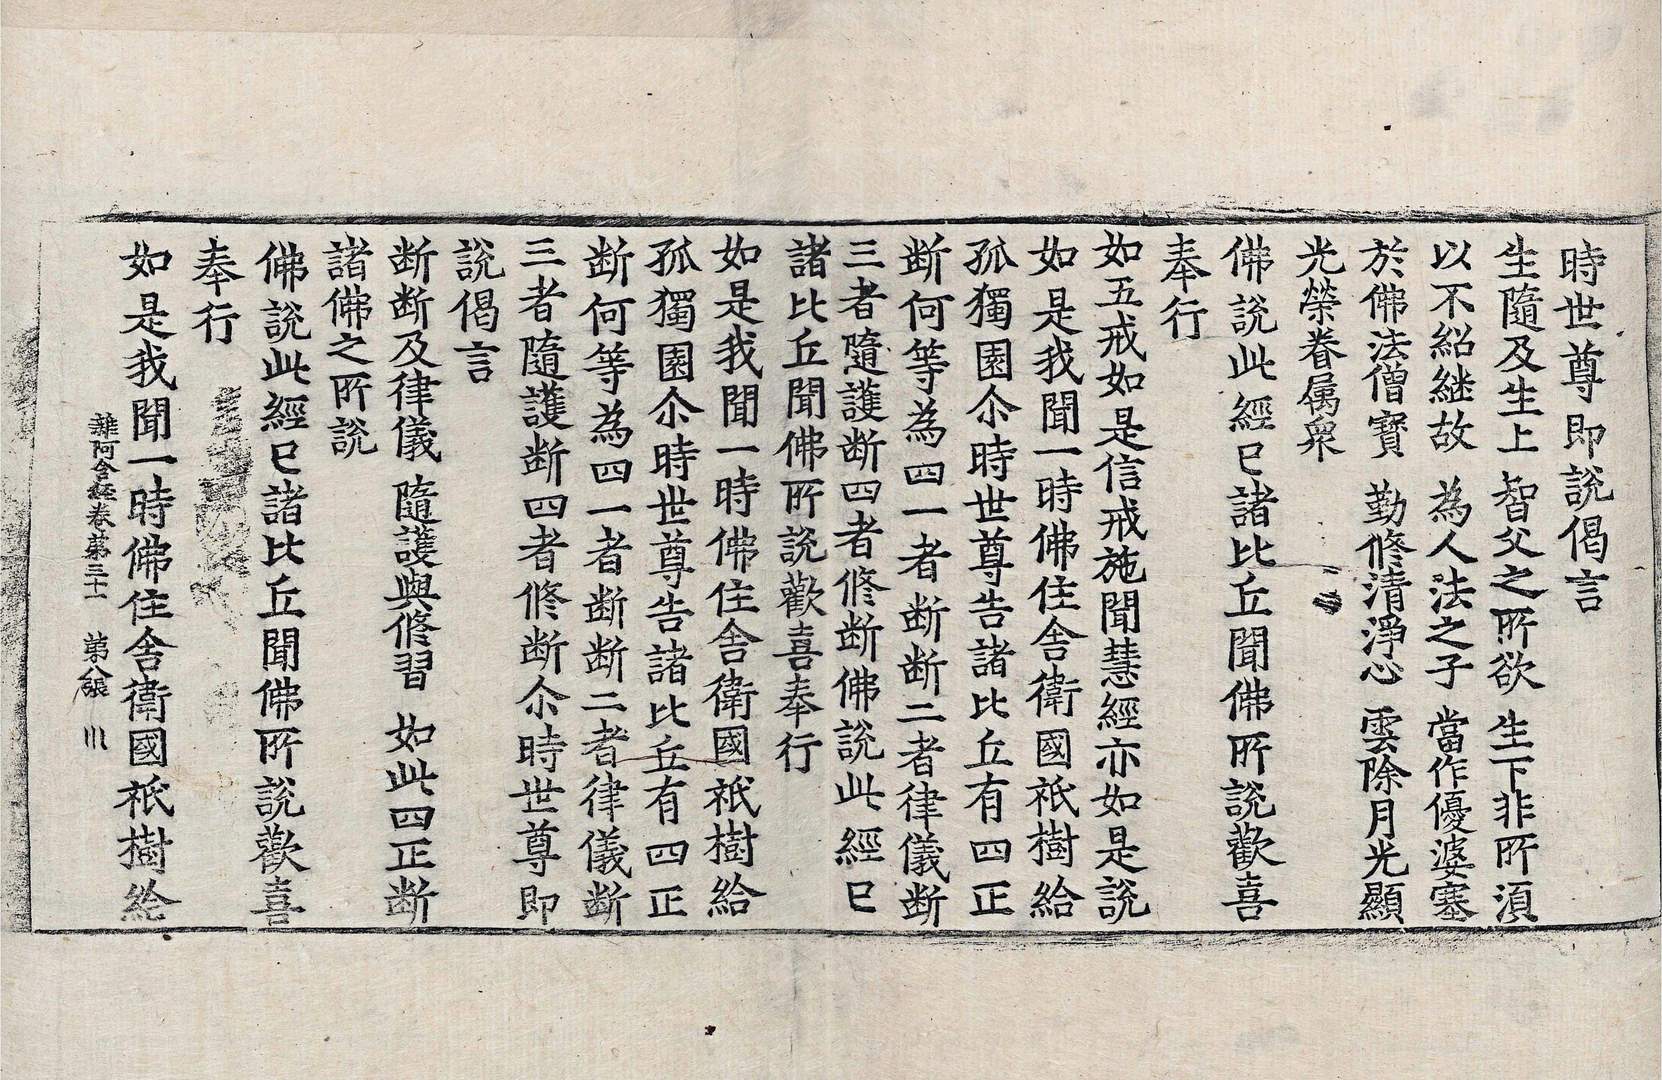 時世尊即説偈言
生隨及生上 智父之所欲 生下非所湏
以不紹継故 為人法之子 當作優婆塞
於佛法僧寳 勤修清淨心 雲除月光顯
光榮眷属衆
佛説此經已諸比丘聞佛所説歡喜
奉行
如五戒如是信戒施聞慧經亦如是説
如是我聞一時佛住舎衛國祇樹給
孤獨園尒時世尊告諸比丘有四正
断何等為四一者断断二者律儀断
三者隨護断四者修断佛説此經已
諸比丘聞佛所説歡喜奉行
如是我聞一時佛住舎衛國祇樹給
孤獨園尒時世尊告諸比丘有四正
断何等為四一者断断二者律儀断
三者隨護断四者修断尒時世尊即
説偈言
断断及律儀 隨護與修習 如此四正断
諸佛之所説
佛説此經已諸比丘聞佛所説歡喜
奉行
雜阿含経卷苐三十一 苐八張
如是我聞一時佛住舎衛國祇樹給